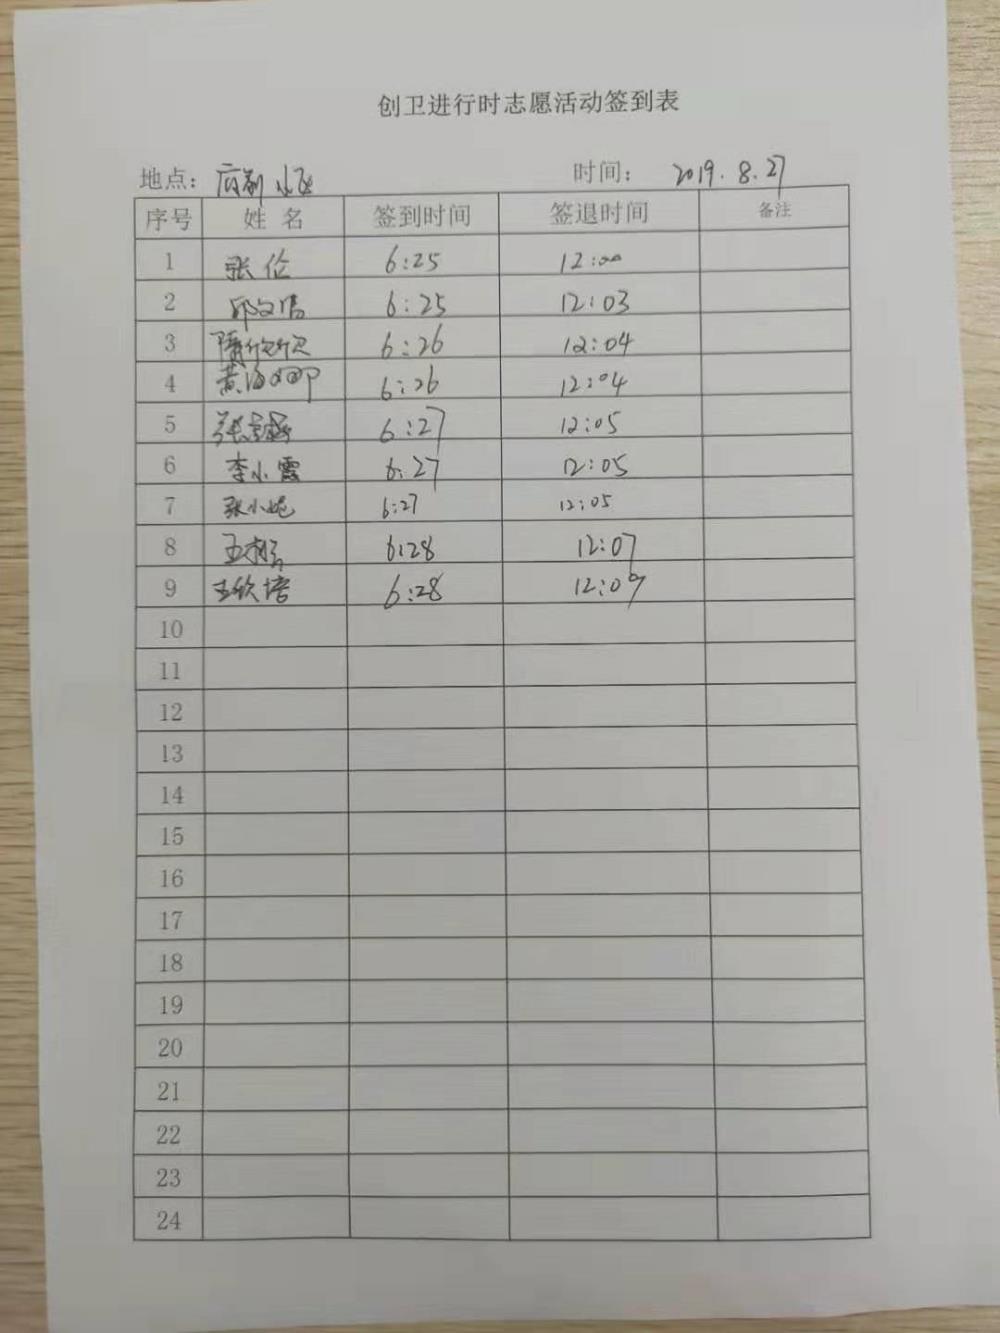 创卫进行时志愿活动签到表
地点： 时间： 2019.8.27
序号 姓名 签到时间 签退时间 备注
1 张伦 6:25 12:00
2 邱文倩 6:25 12:03
3 隋欣欣 6:26 12:04
4 黄海娜 6:26 12:04
5 张 6:27 12:05
6 李小霞 6:27 12:05
7 张小妮 6:27 12:05
8 王 6:28 12:07
9 王欣培 6:28 12:09
10
11
12
13
14
15
16
17
18
19
20
21
22
23
24